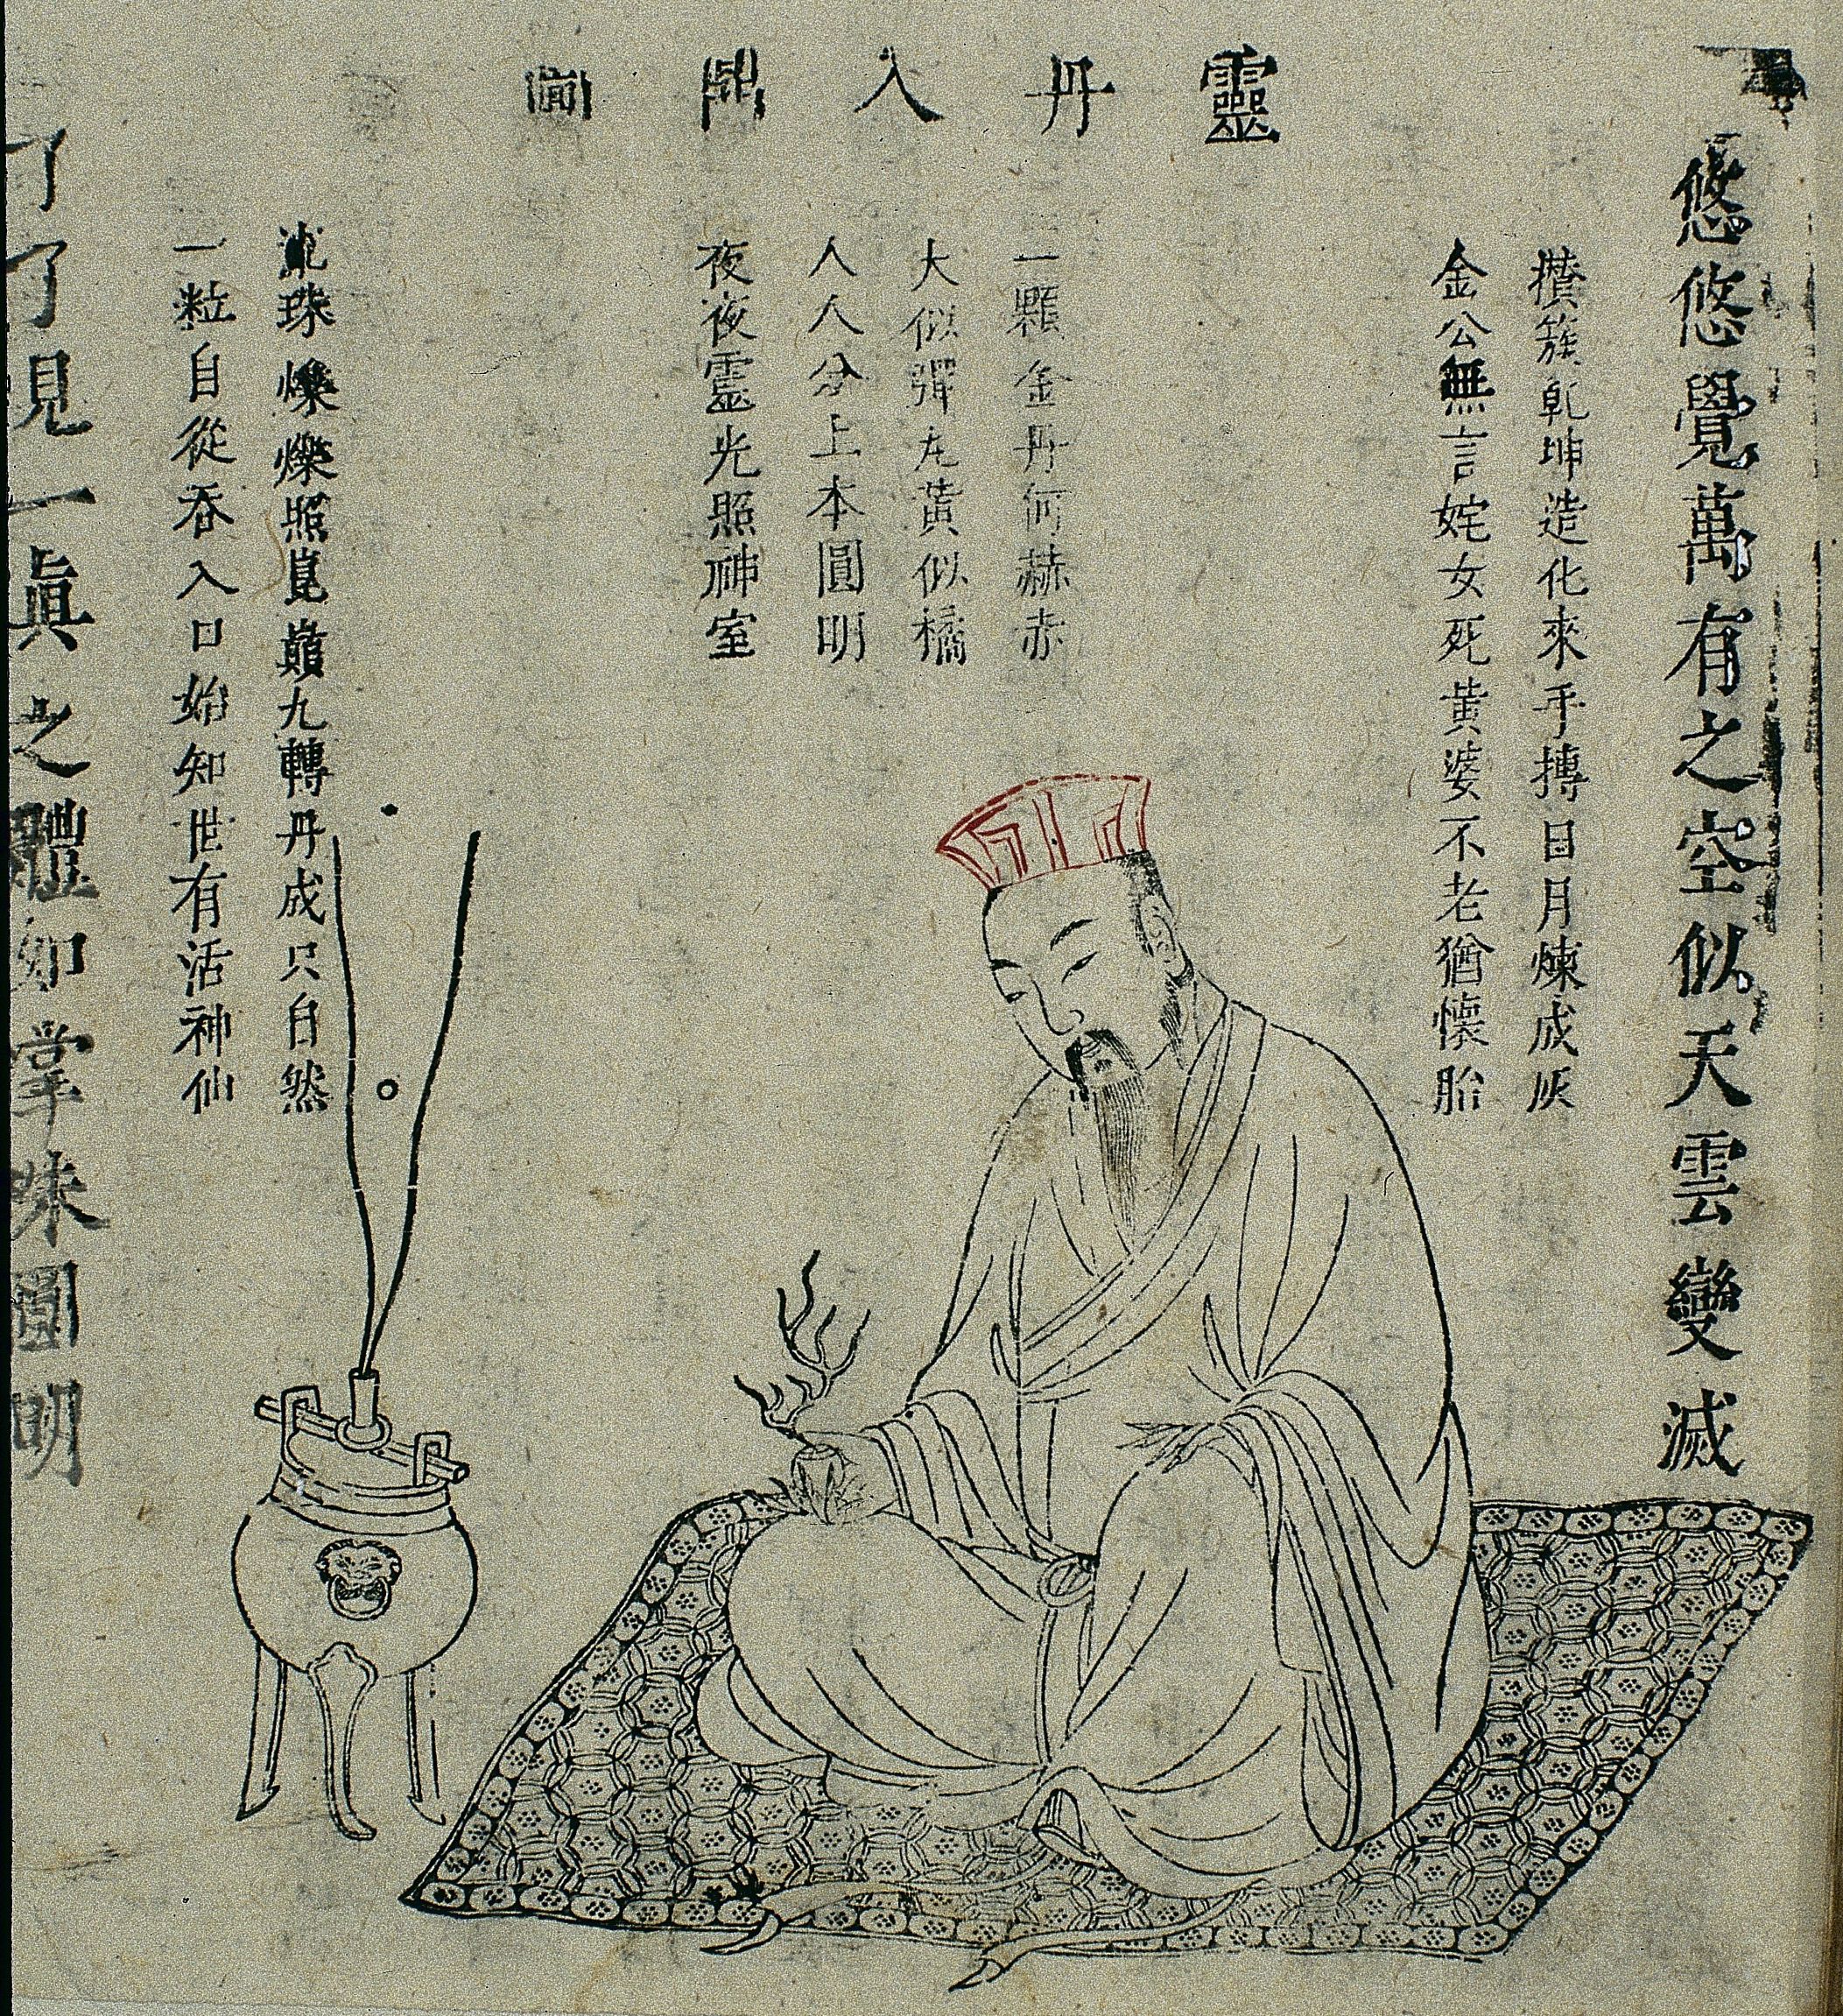 靈丹入鼎圖
悠悠覺萬有之空似天雲變滅
攢簇乾坤造化來手摶日月煉成灰
金公無言姹女死黃婆不老猶懷胎
一顆金丹何赫赤
大似彈丸黃似橘
人人分上本圓明
夜夜靈光照神室
珠爍爍照崑巔九轉丹成只自然
一粒自從吞入口始知世有活神仙
了了見一眞之體如掌珠圓明